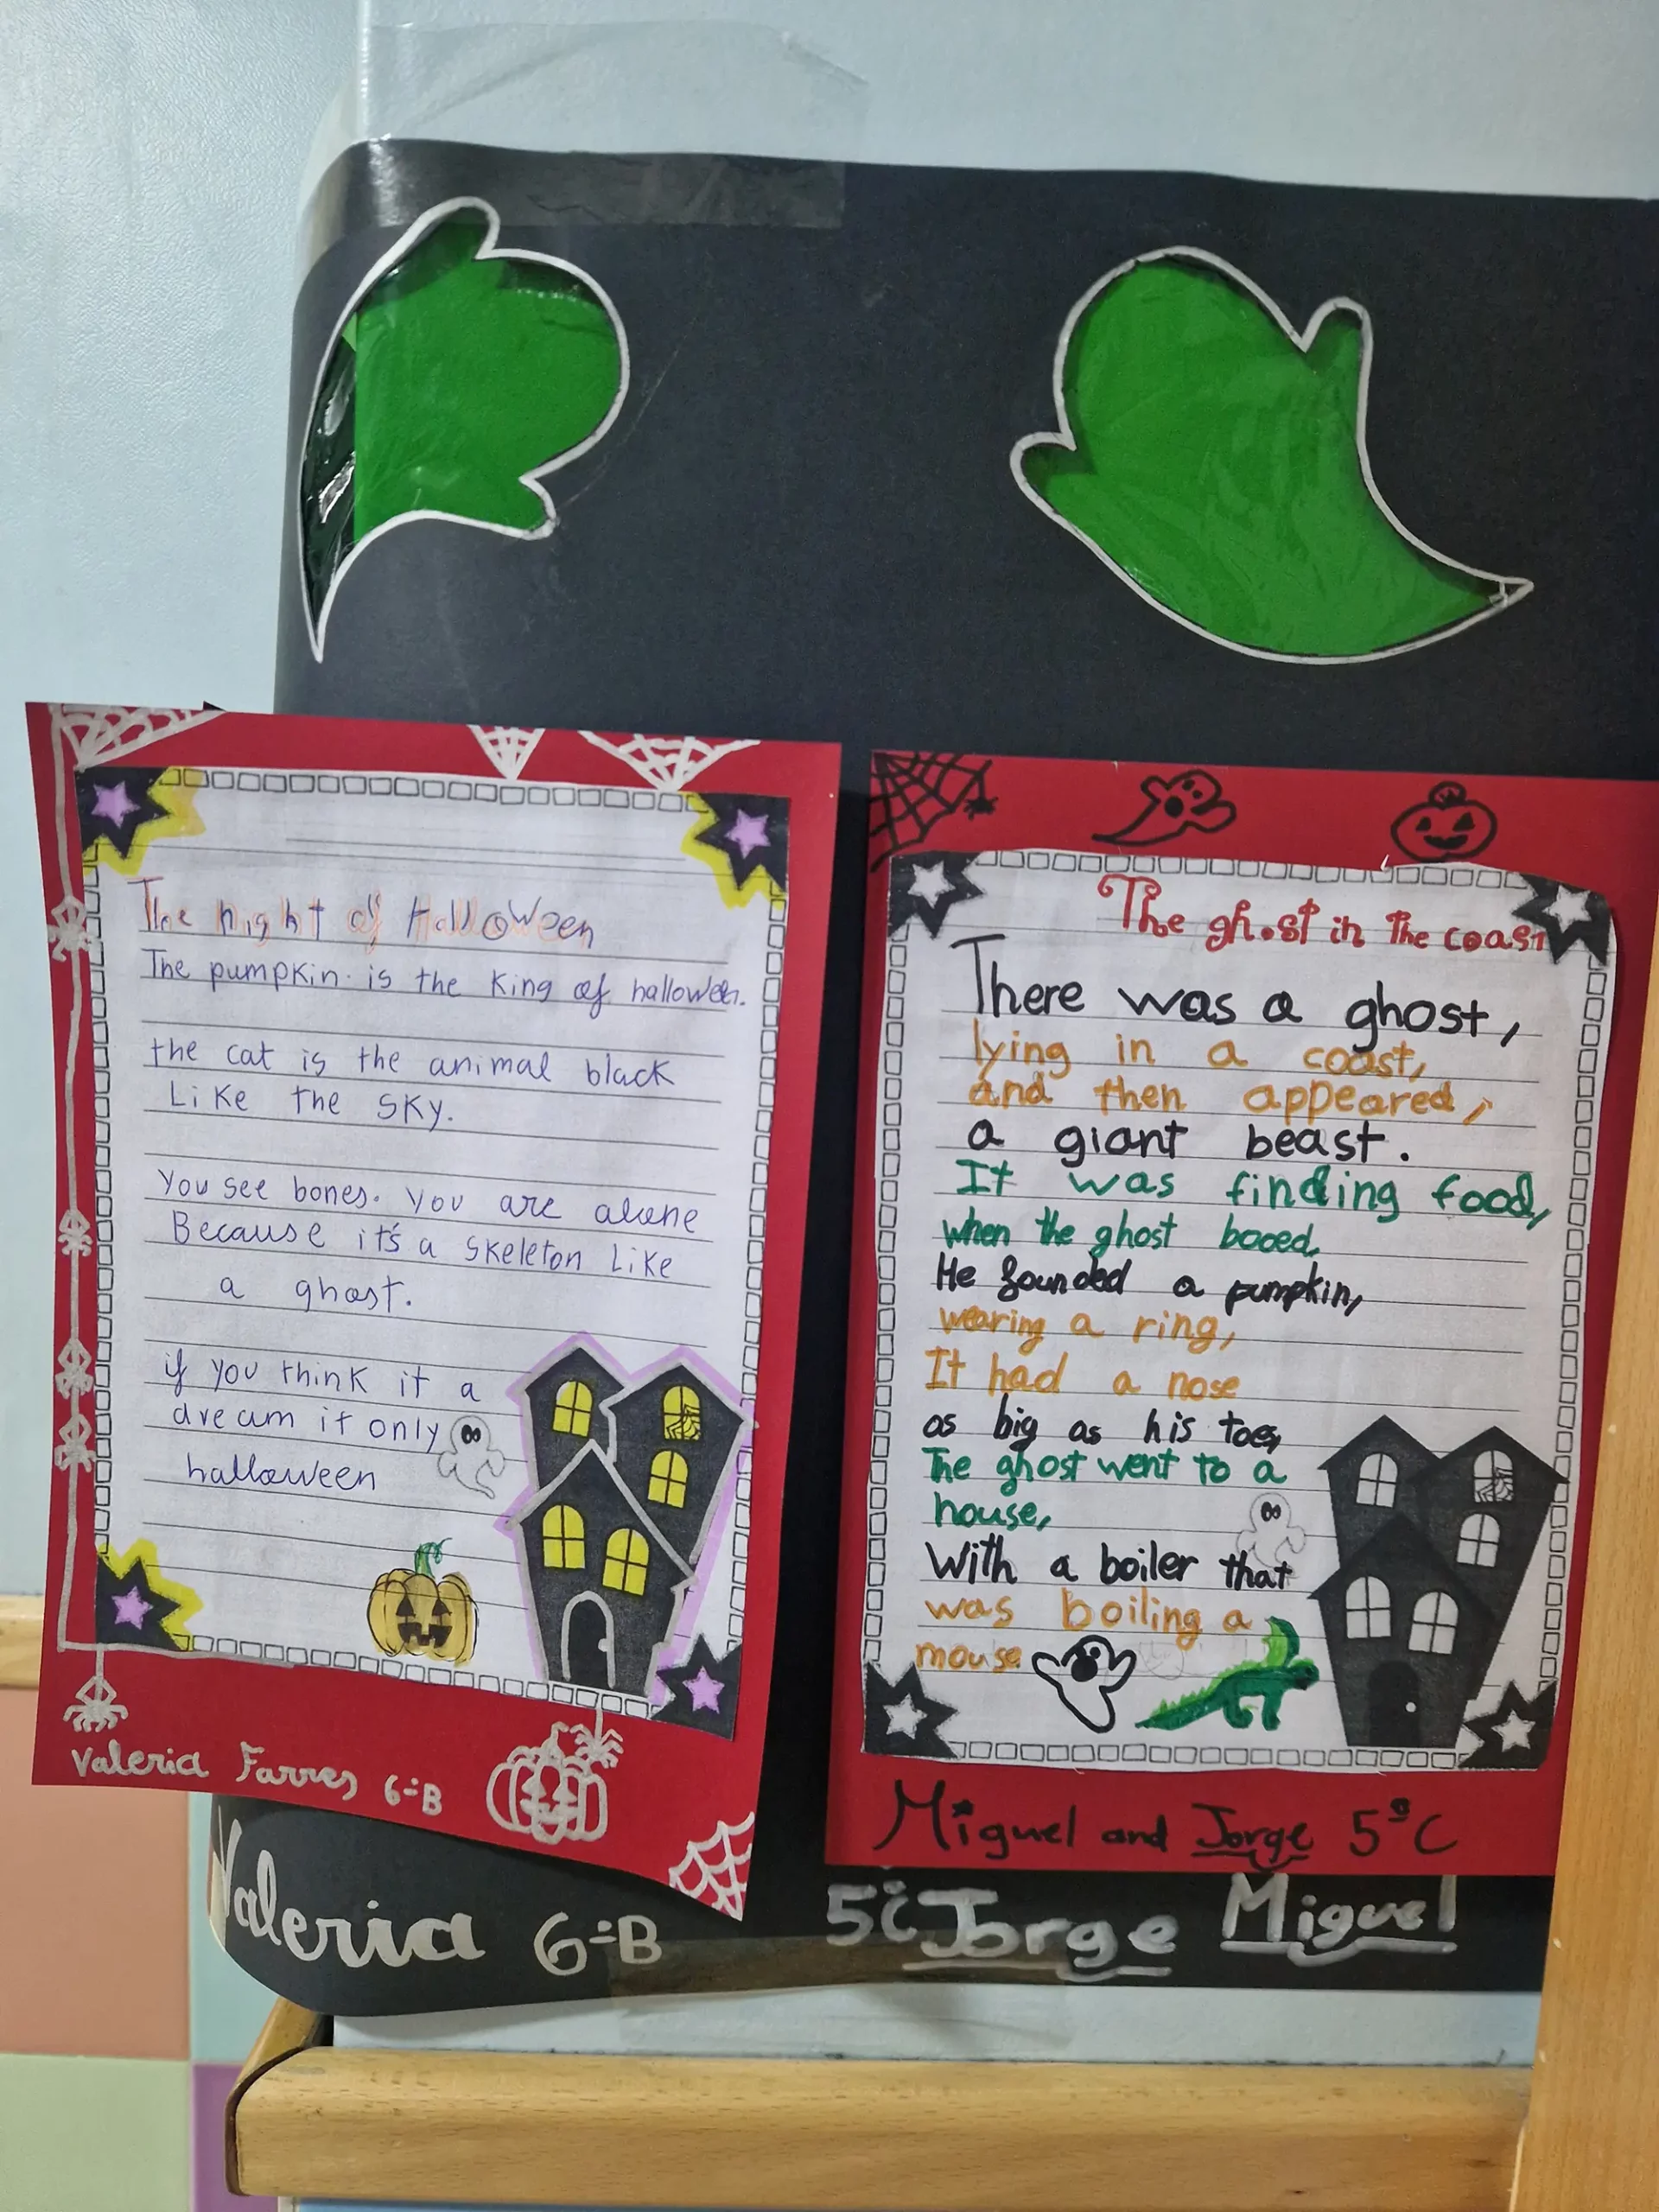 The night of Halloween
The pumpkin is the King of halloween.
the cat is the animal black
Like the SKY.
You see bones. You are alone
Because it's a Skeleton Like
a ghost.
if you think it a
dream it only
halloween
Valeria Farres 6ºB
Valeria 6ºB
The ghost in the coast
There was a ghost,
lying in a coast,
and then appeared,
a giant beast.
It was finding food,
when the ghost booed.
He founded a pumpkin,
wearing a ring,
It had a nose
as big as his toes,
The ghost went to a
house,
With a boiler that
was boiling a
mouse
Miguel and Jorge 5ºC
5ºC Jorge Miguel